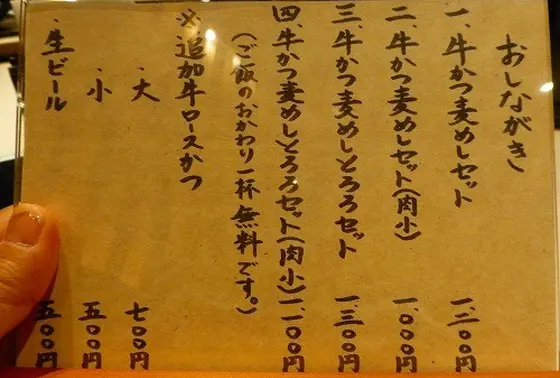 おしながき
一、牛かつ麦めしセット 一、二〇〇円
二、牛かつ麦めしセット(肉小) 一、〇〇〇円
三、牛かつ麦めしとろろセット 一、三〇〇円
四、牛かつ麦めしとろろセット(肉小) 一、一〇〇円
(ご飯のおかわり一杯無料です。)
※追加牛ロースかつ
・大 七〇〇円
・小 五〇〇円
・生ビール 五〇〇円